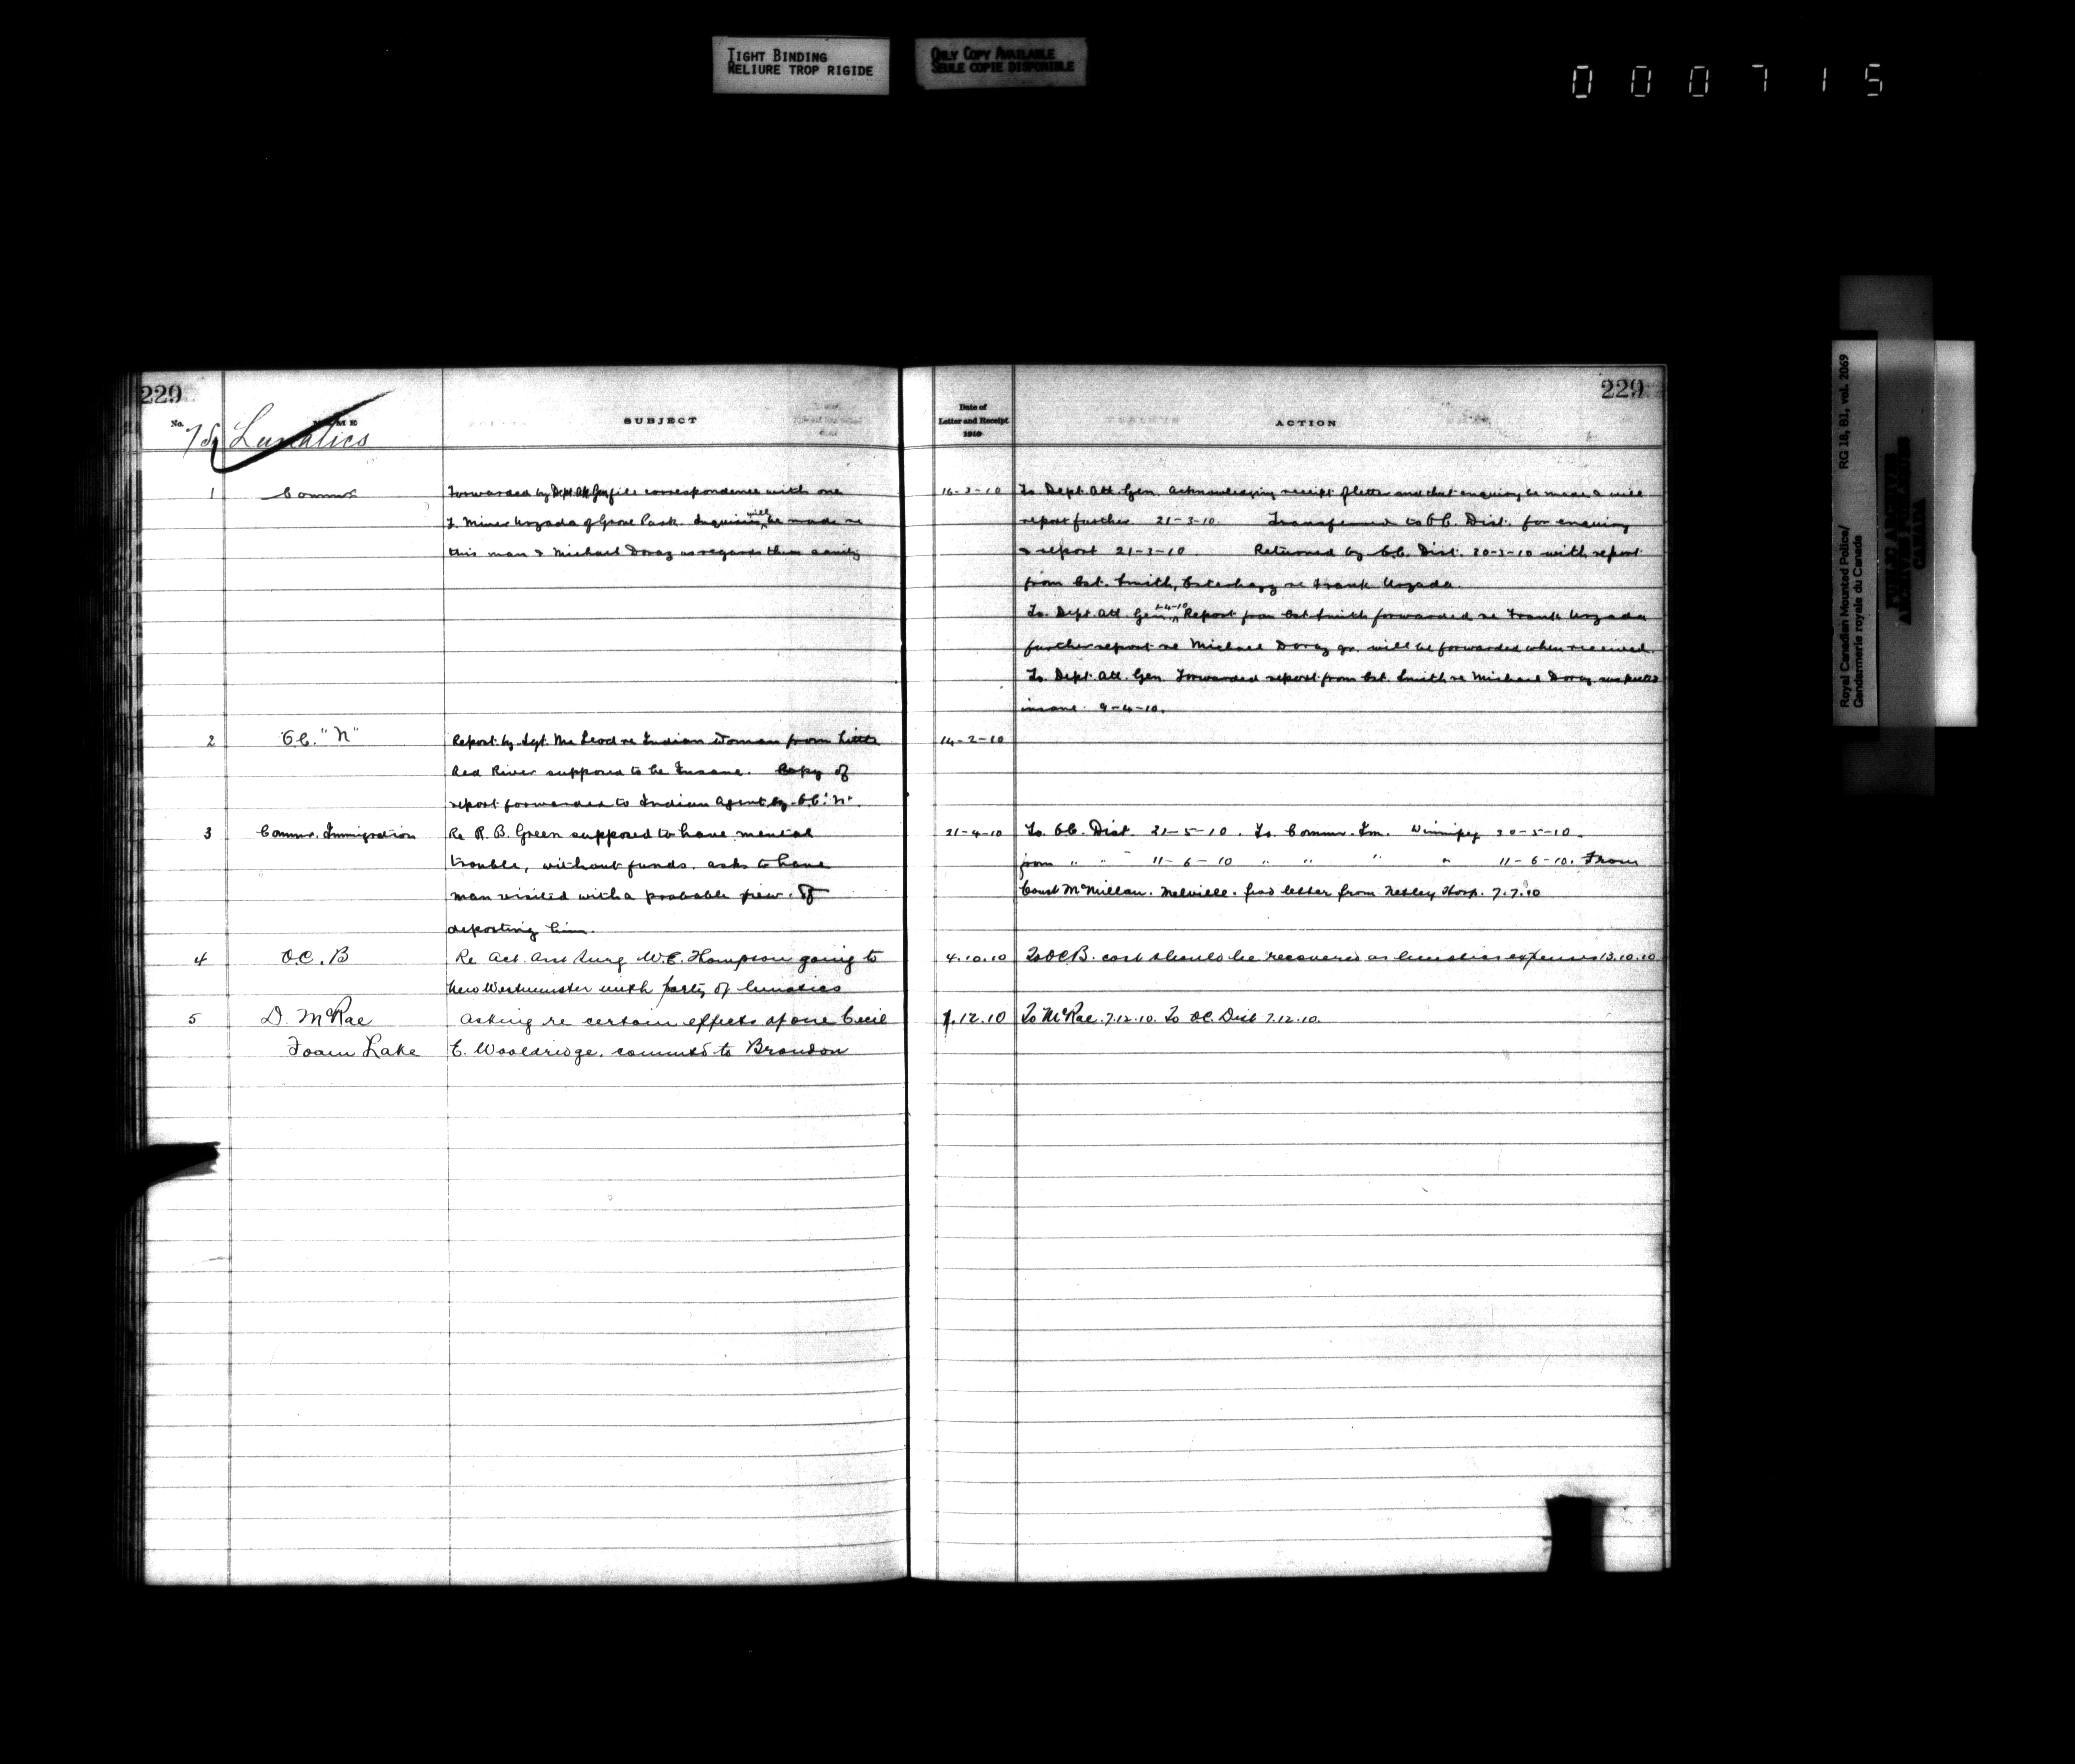 TIGHT BINDING
RELIURE TROP RIGIDE
ONLY COPY AVAILABLE
SEULE COPIE DISPONIBLE
000715
229
229
No.
NAME
SUBJECT
Date of
Letter and Receipt
1910
ACTION
Lunatics
1 Commr
Forwarded by Dept. Att. Gen file correspondence with one
Urzada of Grove Park. Inquiries will be made re
this man & Michael Doray as regards their sanity
16-3-10
To. Dept. Att. Gen. acknowledging receipt of letter and that enquiry be made & will
report further 21-3-10. Transferred to O.C. Dist. for enquiry
& report 21-3-10. Returned by O.C. Dist. 30-3-10 with report
from Cst. Smith, Esterhazy re Frank Urzada.
To. Dept. Att. Gen. 1-4-10 Report from Cst Smith forwarded re Frank Urzada
further report re Michael Doray will be forwarded when received.
To. Dept. Att. Gen Forwarded report from Cst. Smith re Michael Doray suspected
insane 9-4-10.
2 O.C. "N"
Report by Sgt. McLeod re Indian Woman from Little
Red River supposed to be Insane. Copy of
report forwarded to Indian Agent by O.C. "N".
14-2-10
3 Commr. Immigration
Re R. B. Green supposed to have mental
trouble, without funds. asks to have
man visited with a probable view. of
deporting him.
21-4-10
To. O.C. Dist. 21-5-10. To. Commr. Im. Winnipeg 20-5-10.
from " " " 11-6-10 " " " " 11-6-10. From
Const McMillan. Melville. fwd letter from Netley Hosp. 7.7.10
4 O.C. B
Re Act. Asst Surg W.E. Thompson going to
New Westminster with party of lunatics
4.10.10
To OC B. cost should be recovered as lunatics expenses 13.10.10
5 D. McRae
Foam Lake
Asking re certain effects of one Cecil
E. Wooldridge. commtd to Brandon
1.12.10
To McRae. 7.12.10. To OC. Dist 7.12.10.
Royal Canadian Mounted Police/
Gendarmerie royale du Canada
RG 18, B1, vol. 2069
PUBLIC ARCHIVES
ARCHIVES PUBLIQUES
CANADA